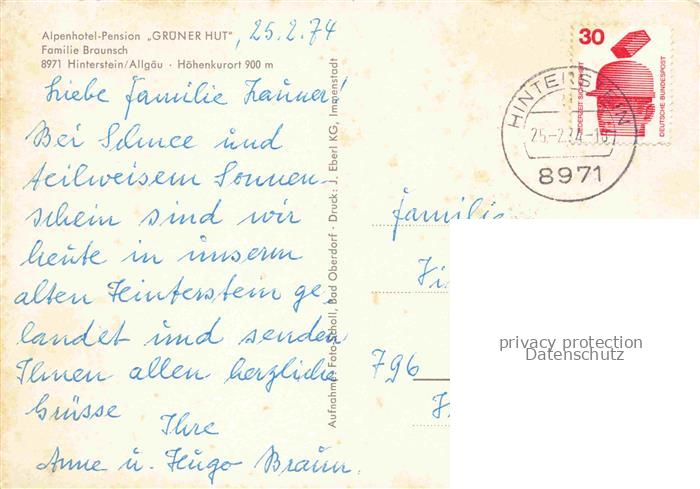 Alpenhotel-Pension „GRÜNER HUT"
Familie Braunsch
8971 Hinterstein/Allgäu · Höhenkurort 900 m
, 25.2.74
Liebe Familie
Bei Schnee und
teilweisem Sonnen-
schein sind wir
heute in unserm
alten Hinterstein ge-
landet und senden
Ihnen allen herzliche
Grüsse
Ihre
Anne u. Hugo Braun.
Aufnahme: Foto-Scholl, Bad Oberdorf · Druck: J. Eberl KG, Immenstadt
30
JEDERZEIT SICHERHEIT
DEUTSCHE BUNDESPOST
HINTERSTEIN
25.-2.74-10
8971
Familie
796
privacy protection
Datenschutz